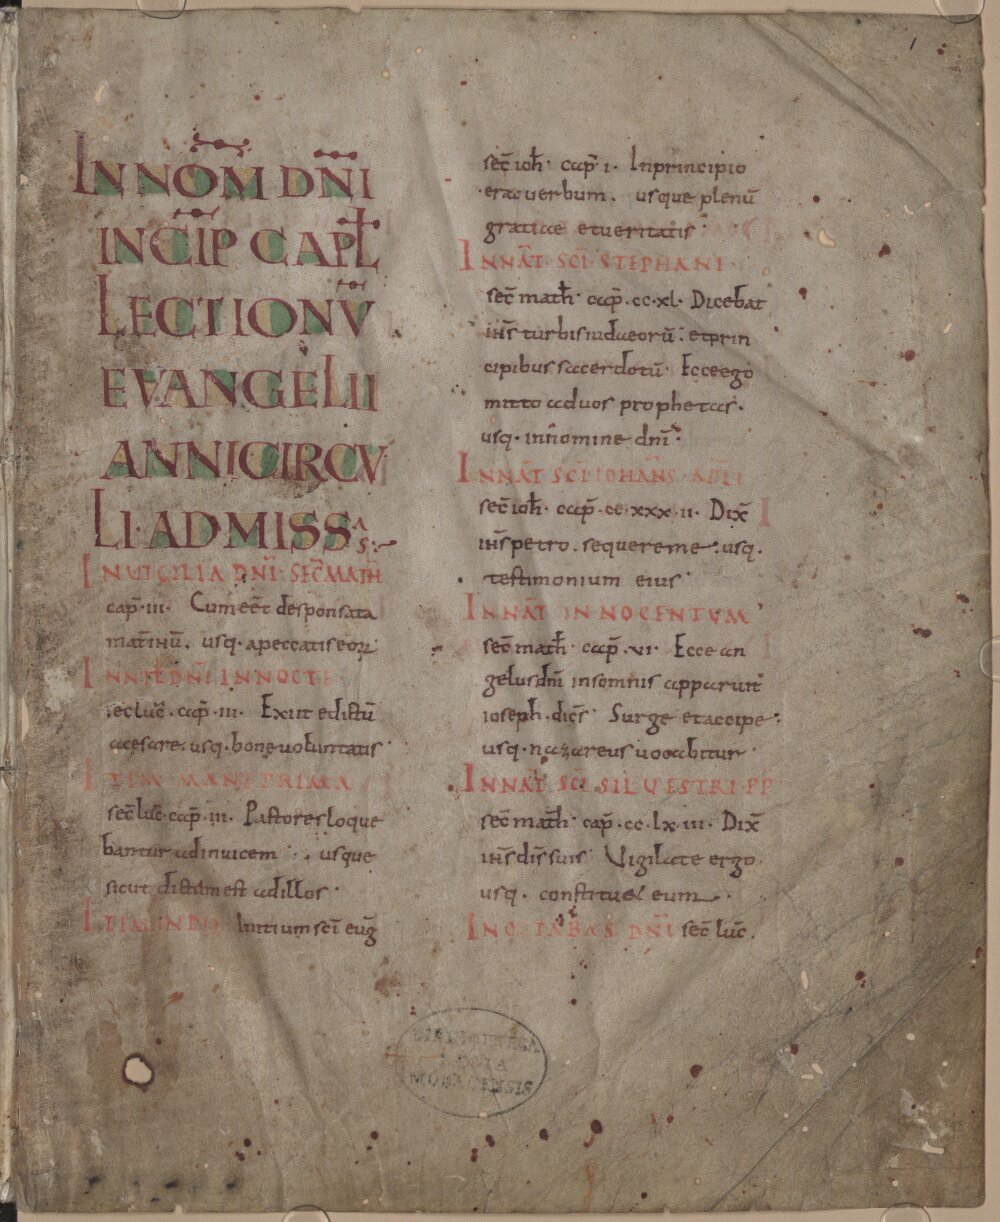 1
IN NOM̅ DN̅I
INCIP̅ CAPŁ
LECTIONV̅
EVANGELII
ANNICIRCV
LI·ADMISSAS:
INUIGILIA DN̅I· SEC̅ MATH̅
cap̅·III· Cum eēt desponsata
mat̅ ihū. usq· apeccatis eoꝝ
IN NT̅ DN̅I INNOCTE
sec̅ luc̅· cap̅· III· Exiit edictū
acesare· usq· bone uoluntatis
ITEM MANE PRIMA
sec̅ luc̅· cap̅· III· Pastores loque
bantur adinuicem · usque
sicut dictum est adillos·
ITEM IN DIE Initium sc̅i eug̅
sec̅ ioh̅· cap̅ I· Inprincipio
erat uerbum. usque plenū
gratiae et ueritatis·
IN NAT̅· SC̅I· STEPHANI·
sec̅ math̅· cap̅·cc·xl· Dicebat
ih̅s turbis iudaeorū· et prin
cipibus sacerdotū· Ecce ego
mitto aduos prophetas·
usq· in nomine dn̅i·
IN NAT̅ SC̅I IOHAN̅S· AP̅LI
sec̅ ioh̅· cap̅·cc·xxx·II· Dix̅
ih̅s petro· sequere me· usq·
testimonium eius·
IN NAT̅ INNOCENTUM
sec̅ math̅· cap̅·VI· Ecce an
gelus dn̅i insomnis apparuit
ioseph· dic̅s· Surge et accipe·
usq· nazareus uocabitur·
IN NAT̅ SC̅I SILVESTRI PP
sec̅ math̅· cap̅·cc·lx·III· Dix̅
ih̅s dis̅ suis· Vigilate ergo·
usq· constituet eum·
IN OCTABAS DN̅I sec̅ luc̅·
BIBLIOTHECA
REGIA
MONACENSIS